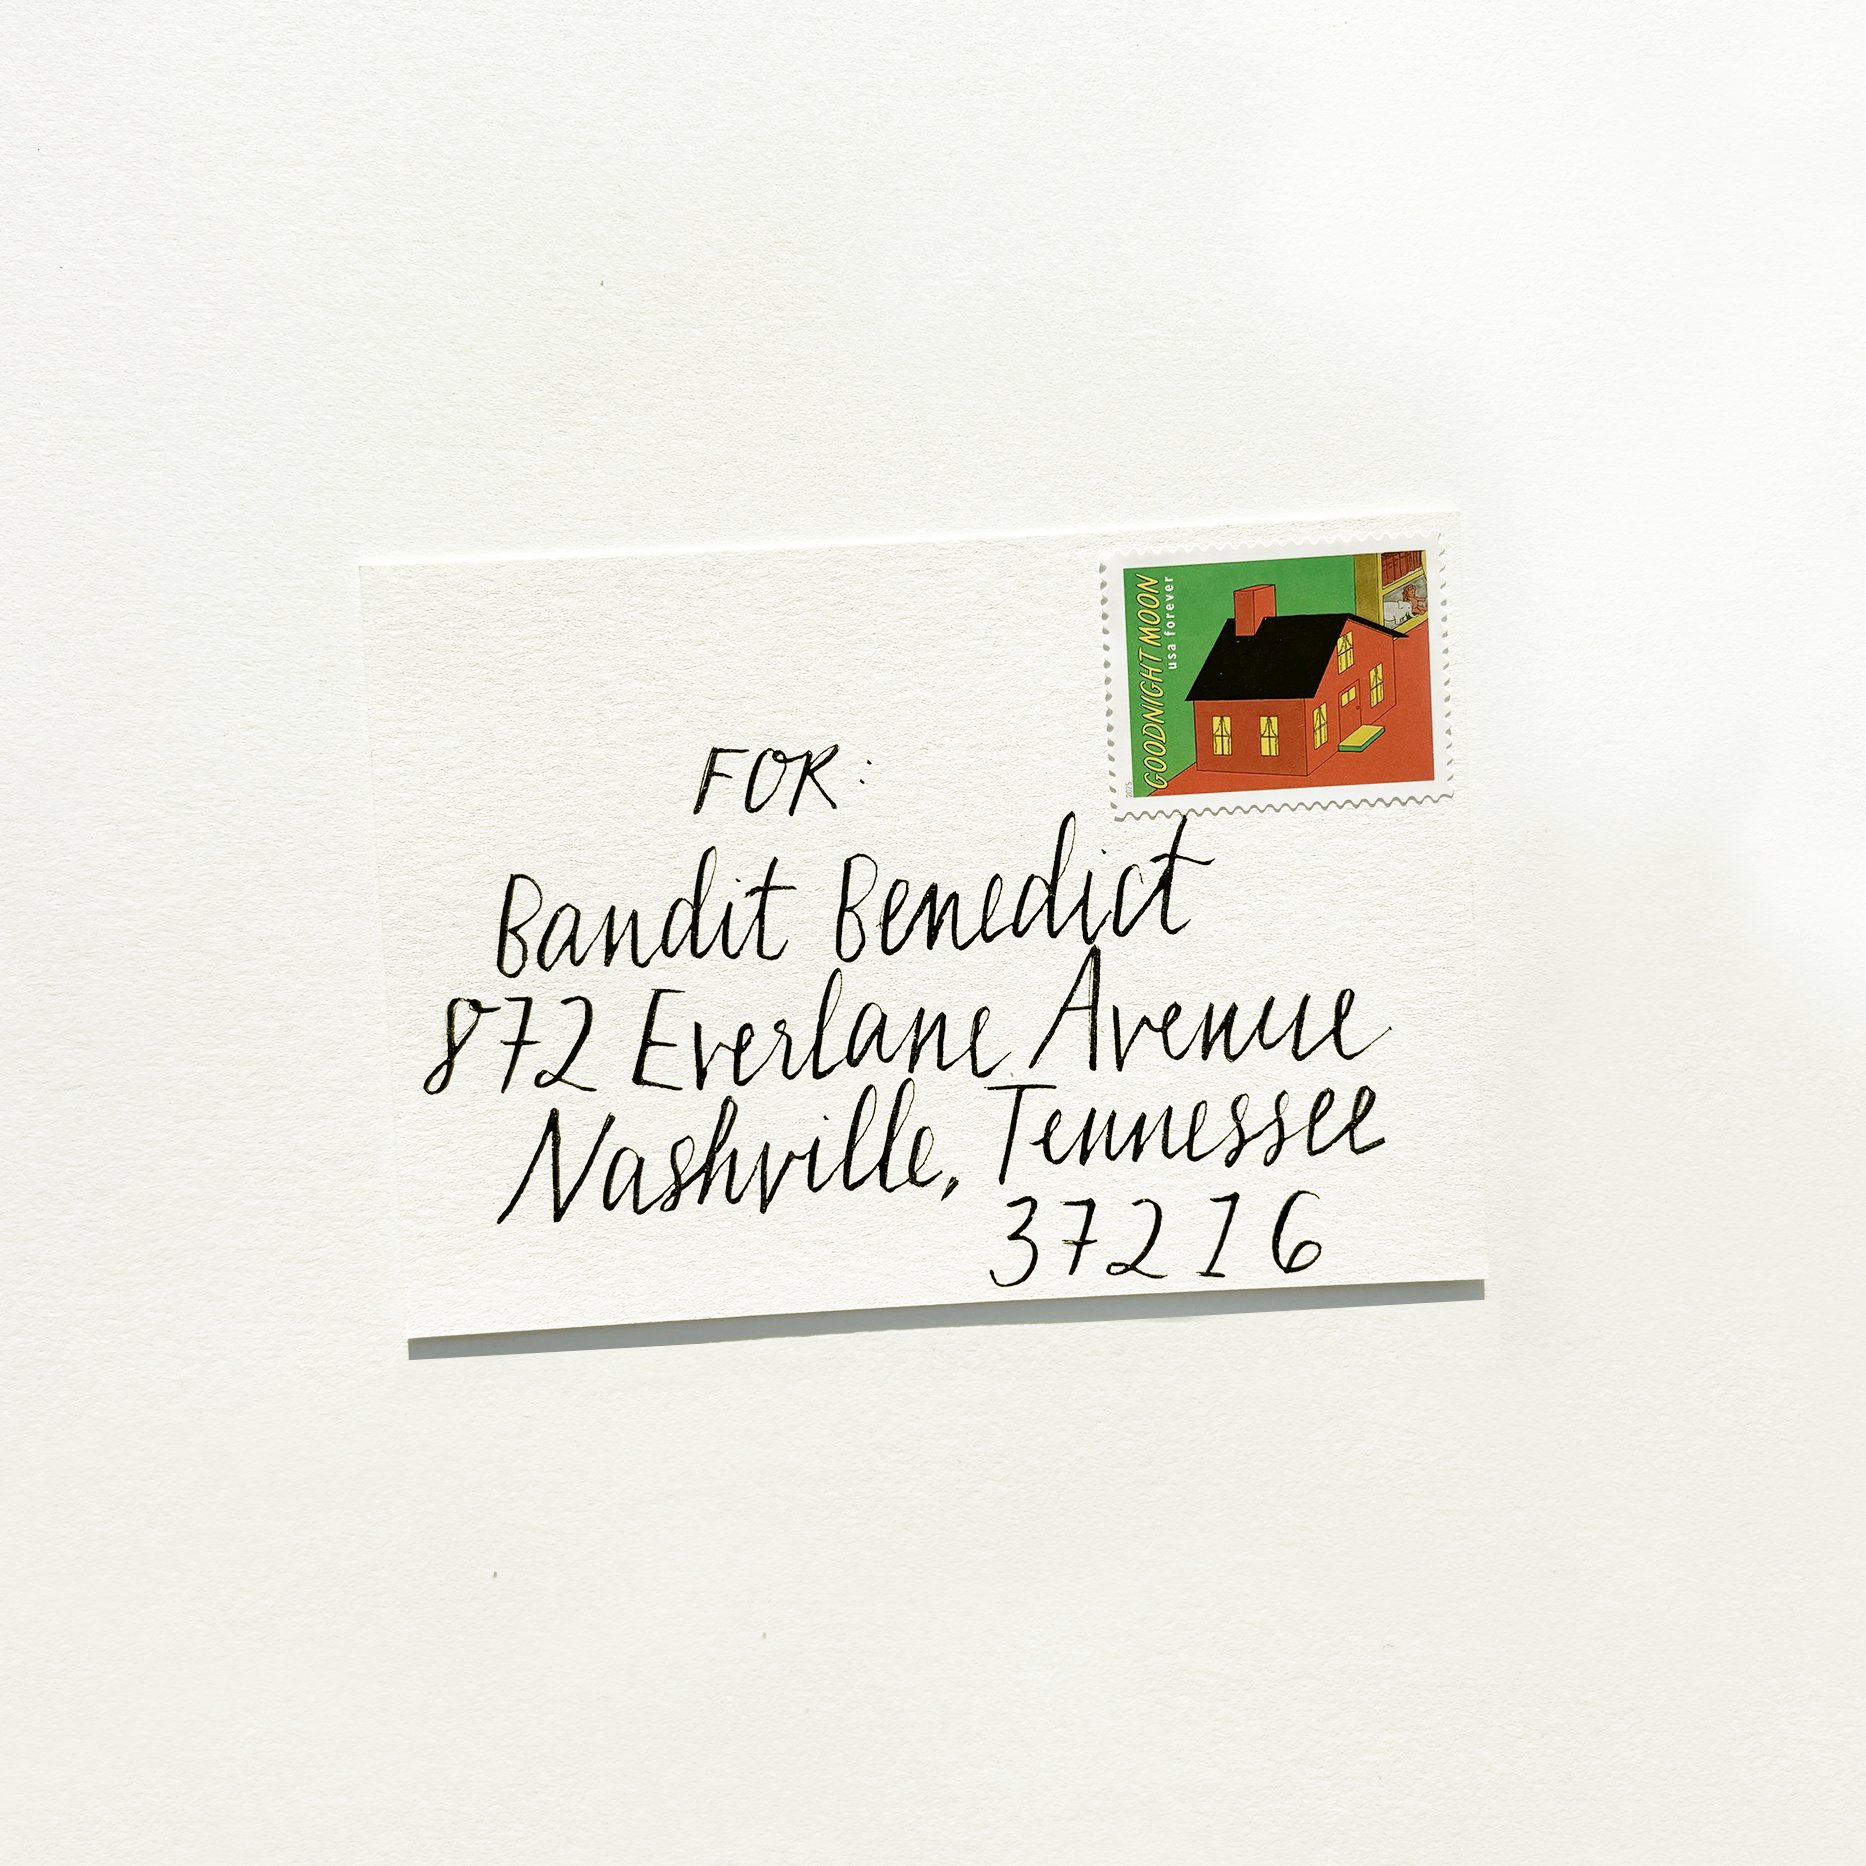 GOODNIGHT MOON
usa forever
2025
FOR:
Bandit Benedict
872 Everlane Avenue
Nashville, Tennessee
37216